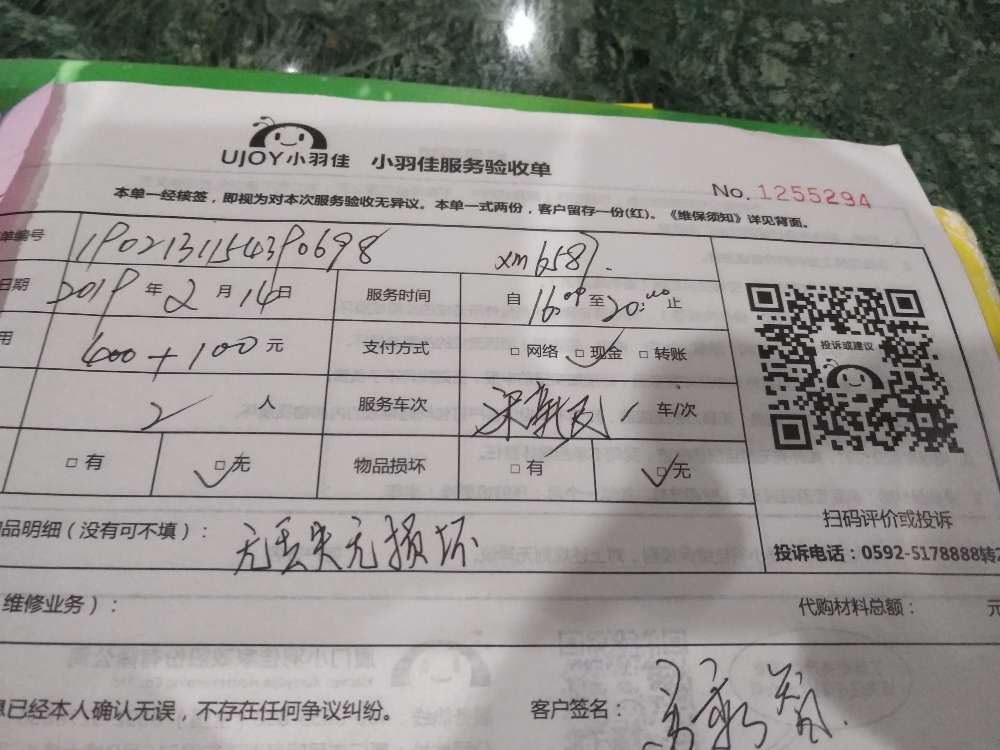 UJOY小羽佳 小羽佳服务验收单
No. 1255294
本单一经核签，即视为对本次服务验收无异议。本单一式两份，客户留存一份(红)。《维保须知》详见背面。
单编号 1902131154390698 xm6587
日期 2019 年 2 月 14 日 服务时间 自 16:00 至 20:00 止
用 400+100 元 支付方式 □ 网络 □ 现金 □ 转账
2 人 服务车次 车/次
□ 有 □ 无 物品损坏 □ 有 □ 无
投诉或建议
扫码评价或投诉
投诉电话：0592-5178888转2
品明细（没有可不填）： 无丢失无损坏
维修业务）： 代购材料总额： 元
息已经本人确认无误，不存在任何争议纠纷。 客户签名：